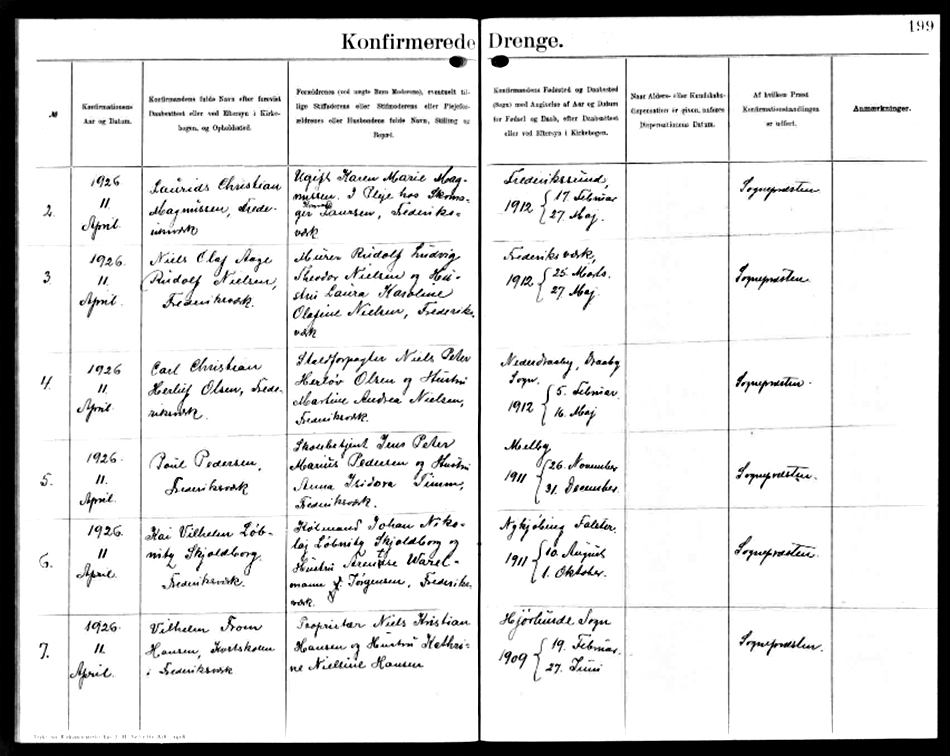 199
Konfirmerede Drenge.
№
Konfirmationens
Aar og Datum.
Konfirmandens fulde Navn efter forevist
Daabsattest eller ved Eftersyn i Kirke-
bogen, og Opholdssted.
Forældrenes (ved uægte Børn Moderens), eventuelt til-
lige Stiffaderens eller Stifmoderens eller Plejefor-
ældrenes eller Husbondens fulde Navn, Stilling og
Bopæl.
Konfirmandens Fødested og Daabssted
(Sogn) med Angivelse af Aar og Datum
for Fødsel og Daab, efter Daabsattest
eller ved Eftersyn i Kirkebogen.
Naar Alders- eller Kundskabs-
dispensation er given, anføres
Dispensationens Datum.
Af hvilken Præst
Konfirmationshandlingen
er udført.
Anmærkninger.
2.
1926
11
April.
Laurids Christian
Magnussen, Frede-
riksværk
Ugift Karen Marie Mag-
nussen. I Pleje hos Skoma-
ger Laursen, Frederiks-
værk
Frederikssund,
1912 { 17. Februar
27. Maj.
Sognepræsten
3.
1926.
11.
April.
Niels Olaf Aage
Rudolf Nielsen,
Frederiksværk.
Murer Rudolf Ludvig
Theodor Nielsen og Hu-
stru Laura Karoline
Olafine Nielsen, Frederiks-
værk
Frederiksværk,
1912 { 25. Marts.
27. Maj.
Sognepræsten.
4.
1926
11
April.
Carl Christian
Herluf Olsen, Frede-
riksværk.
Staldforpagter Niels Peter
Herlöv Olsen og Hustru
Martine Andrea Nielsen,
Frederiksværk.
Nederdraaby, Draaby
Sogn.
1912 { 5. Februar.
16. Maj
Sognepræsten.
5.
1926.
11.
April.
Poul Pedersen,
Frederiksværk
Skolebetjent Jens Peter
Marius Pedersen og Hustru
Anna Isidora Timm,
Frederiksværk.
Melby
1911 { 26. November
31. December.
Sognepræsten.
6.
1926.
11
April.
Kai Vilhelm Løb-
nitz Skjoldborg.
Frederiksværk.
Købmand Johan Niko-
laj Løbnitz Skjoldborg og
Hustru
mann Jørgensen, Frederiks-
værk.
Nykjøbing Falster.
1911 { 10. August
1. Oktober.
Sognepræsten.
7.
1926.
11.
April.
Vilhelm From
Hansen, Kostskolen
i Frederiksværk
Proprietær Niels Kristian
Hansen og Hustru Kathri-
ne Nielsine Hansen
Hjørlunde Sogn
1909 { 19. Februar.
27. Juni
Sognepræsten.